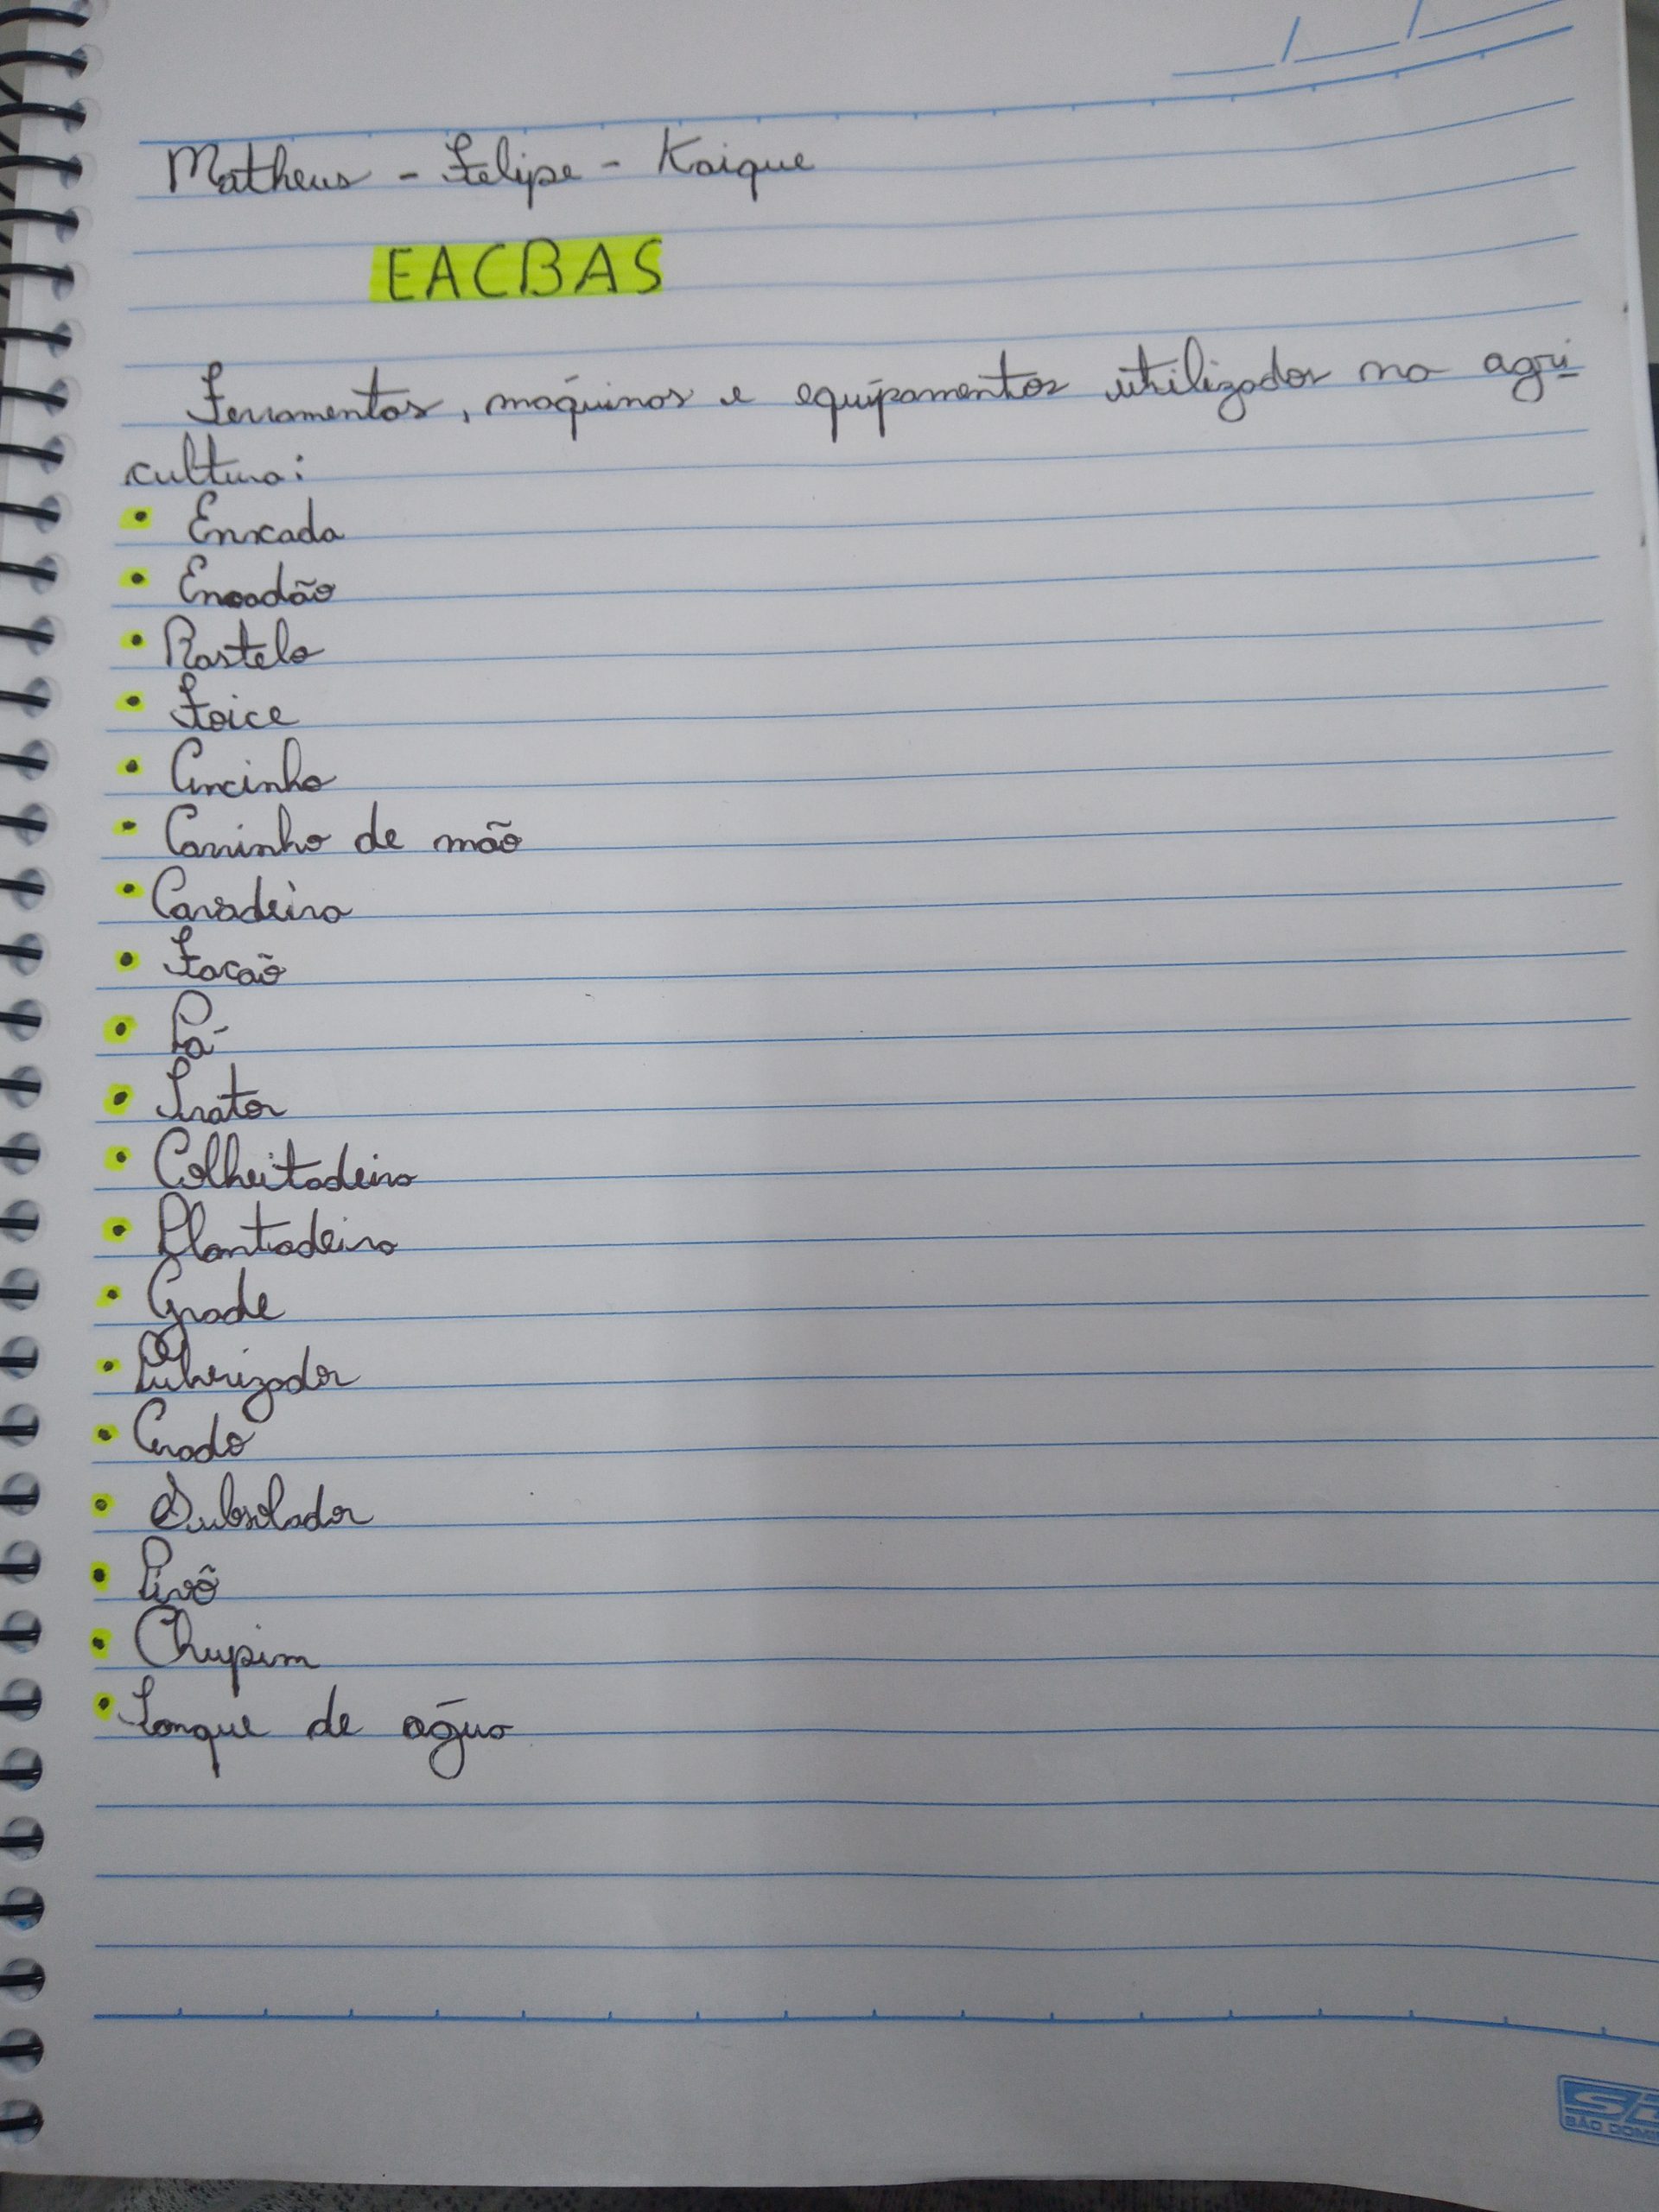 Matheus - Felipe - Kaique
EACBAS
Ferramentas, máquinas e equipamentos utilizados na agri-
cultura:
• Enxada
• Enxadão
• Rastelo
• Foice
• Ancinho
• Carrinho de mão
• Cavadeira
• Facão
• Pá
• Trator
• Colheitadeira
• Plantadeira
• Grade
• Pulverizador
• Arado
• Subsolador
• Pivô
• Chupim
• Tanque de água
SÃO DOMI